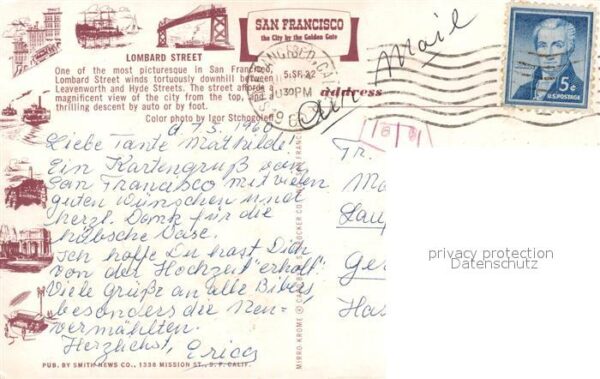 SAN FRANCISCO
the City by the Golden Gate
LOMBARD STREET
One of the most picturesque in San Francisco,
Lombard Street winds tortuously downhill between
Leavenworth and Hyde Streets. The street affords a
magnificent view of the city from the top, and a
thrilling descent by auto or by foot.
Color photo by Igor Stchogoleff
d. 1960
Liebe Tante Mathilde!
Ein Kartengruß von
San Francisco mit vielen
guten Wünschen und
herzl. Dank für die
hübsche Vase.
Ich hoffe Du hast Dich
von der Hochzeit "erholt"
Viele grüße an alle Bibers,
besonders die Neu-
vermählten.
Herzlichst, Erica
PUB. BY SMITH NEWS CO., 1338 MISSION ST., S. F. CALIF.
MIRRO-KROME ® CARD BY H. S. CROCKER CO.
Air Mail
address
PM
5¢
U.S. POSTAGE
Fr.
Ma
Lau
Ger
Ha
privacy protection
Datenschutz